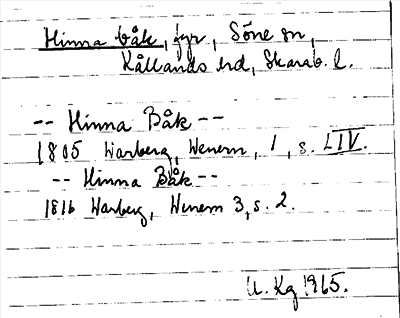 Hinna båk, fyr, Söne sn,
Kållands hd, Skarab. l.
-- Hinna Båk --
1805 Warberg, Wenern, 1, s. LIV.
-- Hinna Båk --
1816 Warberg, Wenern 3, s. 2.
U. Kg 1965.